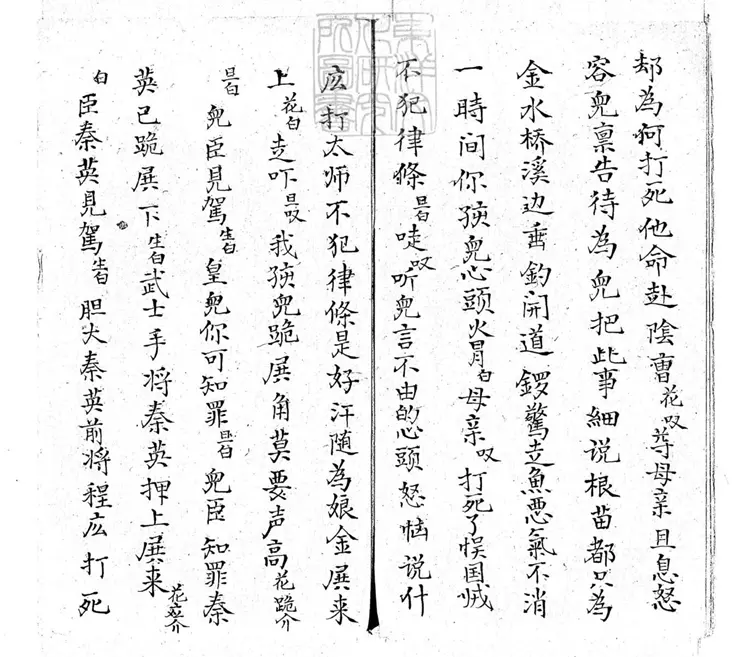 却為何打死他命赴陰曹花叹尊母亲且息怒
容兒禀告待為兒把此事细说根苗都只為
金水桥溪边垂釣開道鑼驚走魚惡氣不消
一時间你孩兒心頭火冒白母亲叹打死了悮国贼
不犯律條旦白唗叹听兒言不由的心頭怒恼说什
広打太师不犯律條是好汗随為娘金展来
上花白走吓旦叹我孩兒跪展角莫要声高花跪介
旦白兒臣見駕生白皇兒你可知罪旦白兒臣知罪秦
英已跪展下生白武士手将秦英押上展来花立介
白臣秦英見駕生白胆大秦英前将程広打死
東洋文
化研究
所圖書